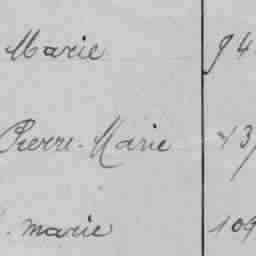 Marie 94
Pierre-Marie 43
marie 109